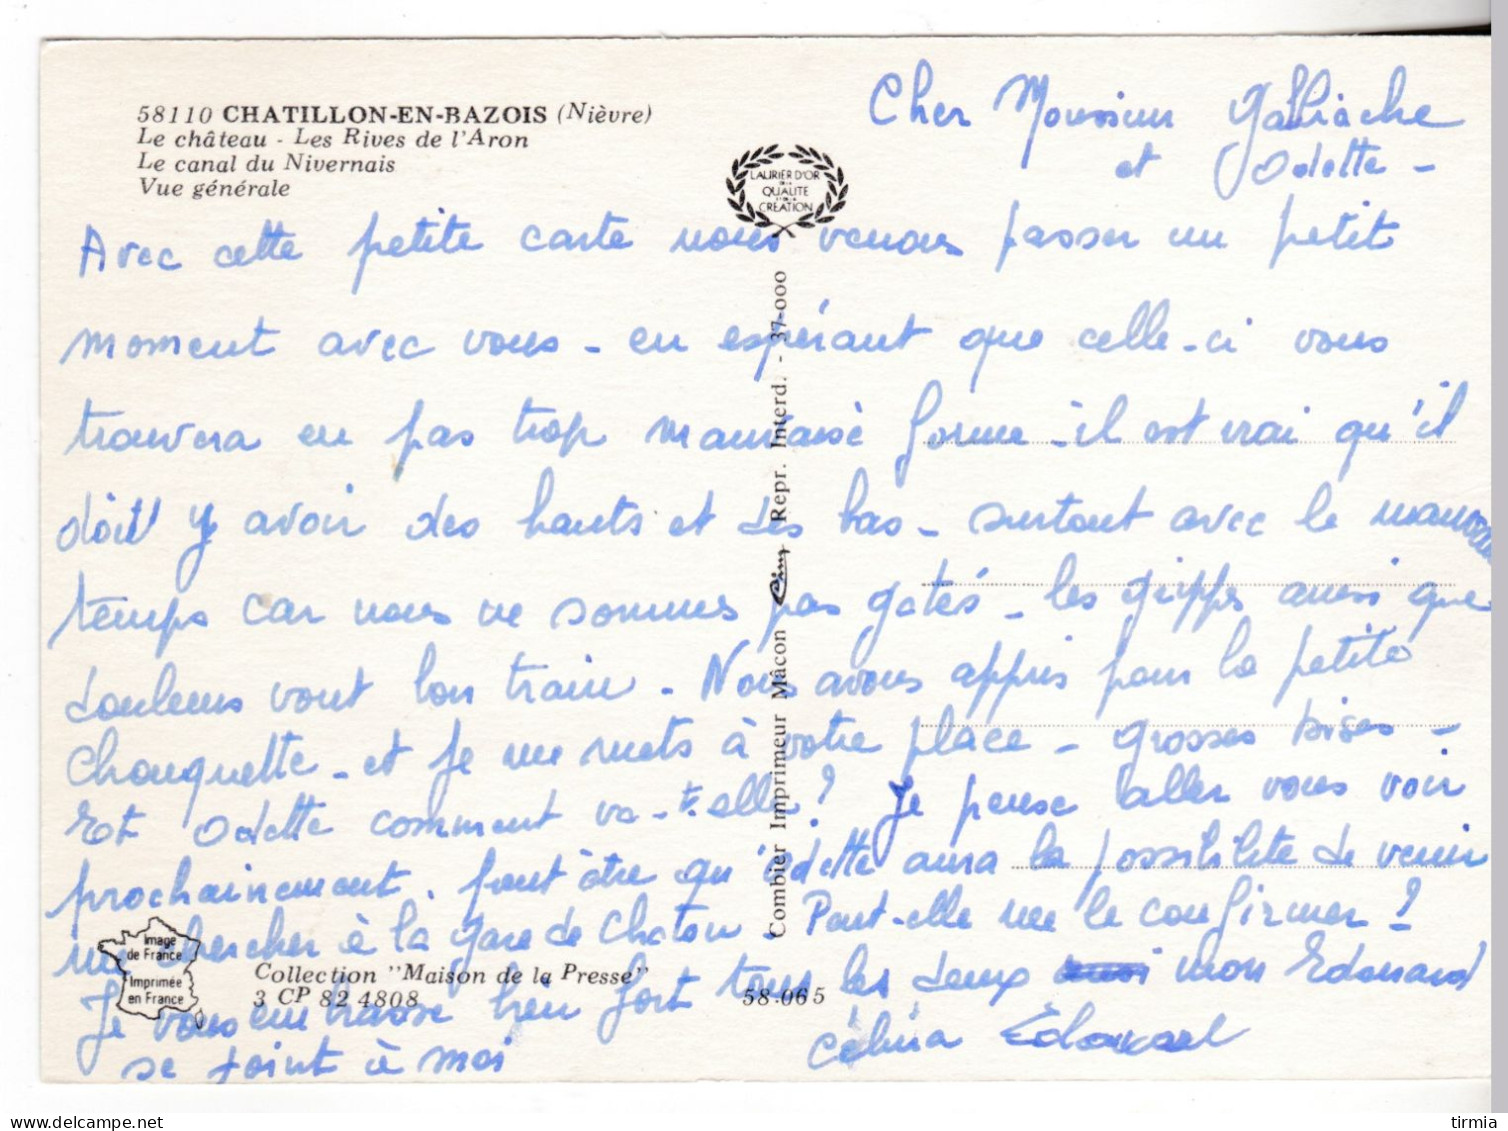 58110 CHATILLON-EN-BAZOIS (Nièvre)
Le château - Les Rives de l'Aron
Le canal du Nivernais
Vue générale
LAURIER D'OR
DE LA
QUALITE
ET DE LA
CREATION
Cher Monsieur
et Odette -
Avec cette petite carte nous venons passer un petit
moment avec vous - en espérant que celle-ci vous
trouvera en pas trop mauvaise forme - il est vrai qu'il
doit y avoir des hauts et des bas - surtout avec le mauvais
temps car nous ne sommes pas gatés - les grippes ainsi que
douleurs vont bon train - Nous avons appris pour la petite
Chouquette - et je me mets à votre place - grosses bises -
Et Odette comment va-t-elle? Je pense aller vous voir
prochainement. peut être qu'Odette aura la possibilité de venir
me chercher à la gare de Chaton - Peut-elle me le confirmer?
Je vous embrasse bien fort tous les deux mon Edouard
se joint à moi
Célina Edouard
Combier Imprimeur Mâcon Cim Repr. Interd. - 37-000
Image
de France
Imprimée
en France
Collection "Maison de la Presse"
3 CP 82 4808
58.065
delcampe.net
tirmia